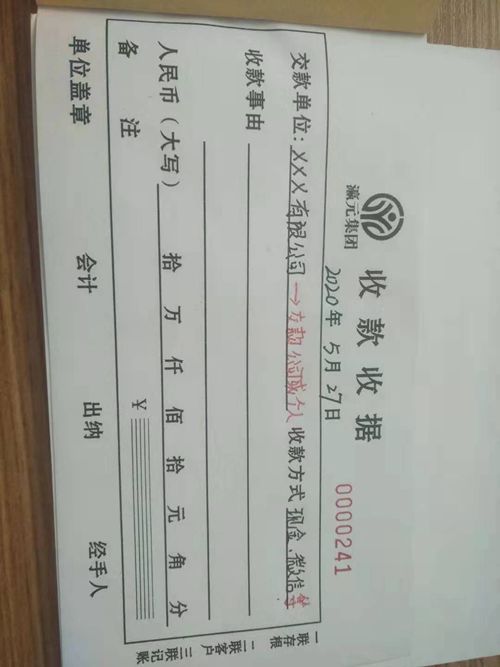 瀛元集团
收款收据
0000241
2020年5月27日
交款单位：XXX有限公司→交款公司或个人 收款方式 现金、微信等
收款事由
人民币（大写） 拾 万 仟 佰 拾 元 角 分
备注 ¥
单位盖章 会计 出纳 经手人
一联存根
二联客户
三联记账